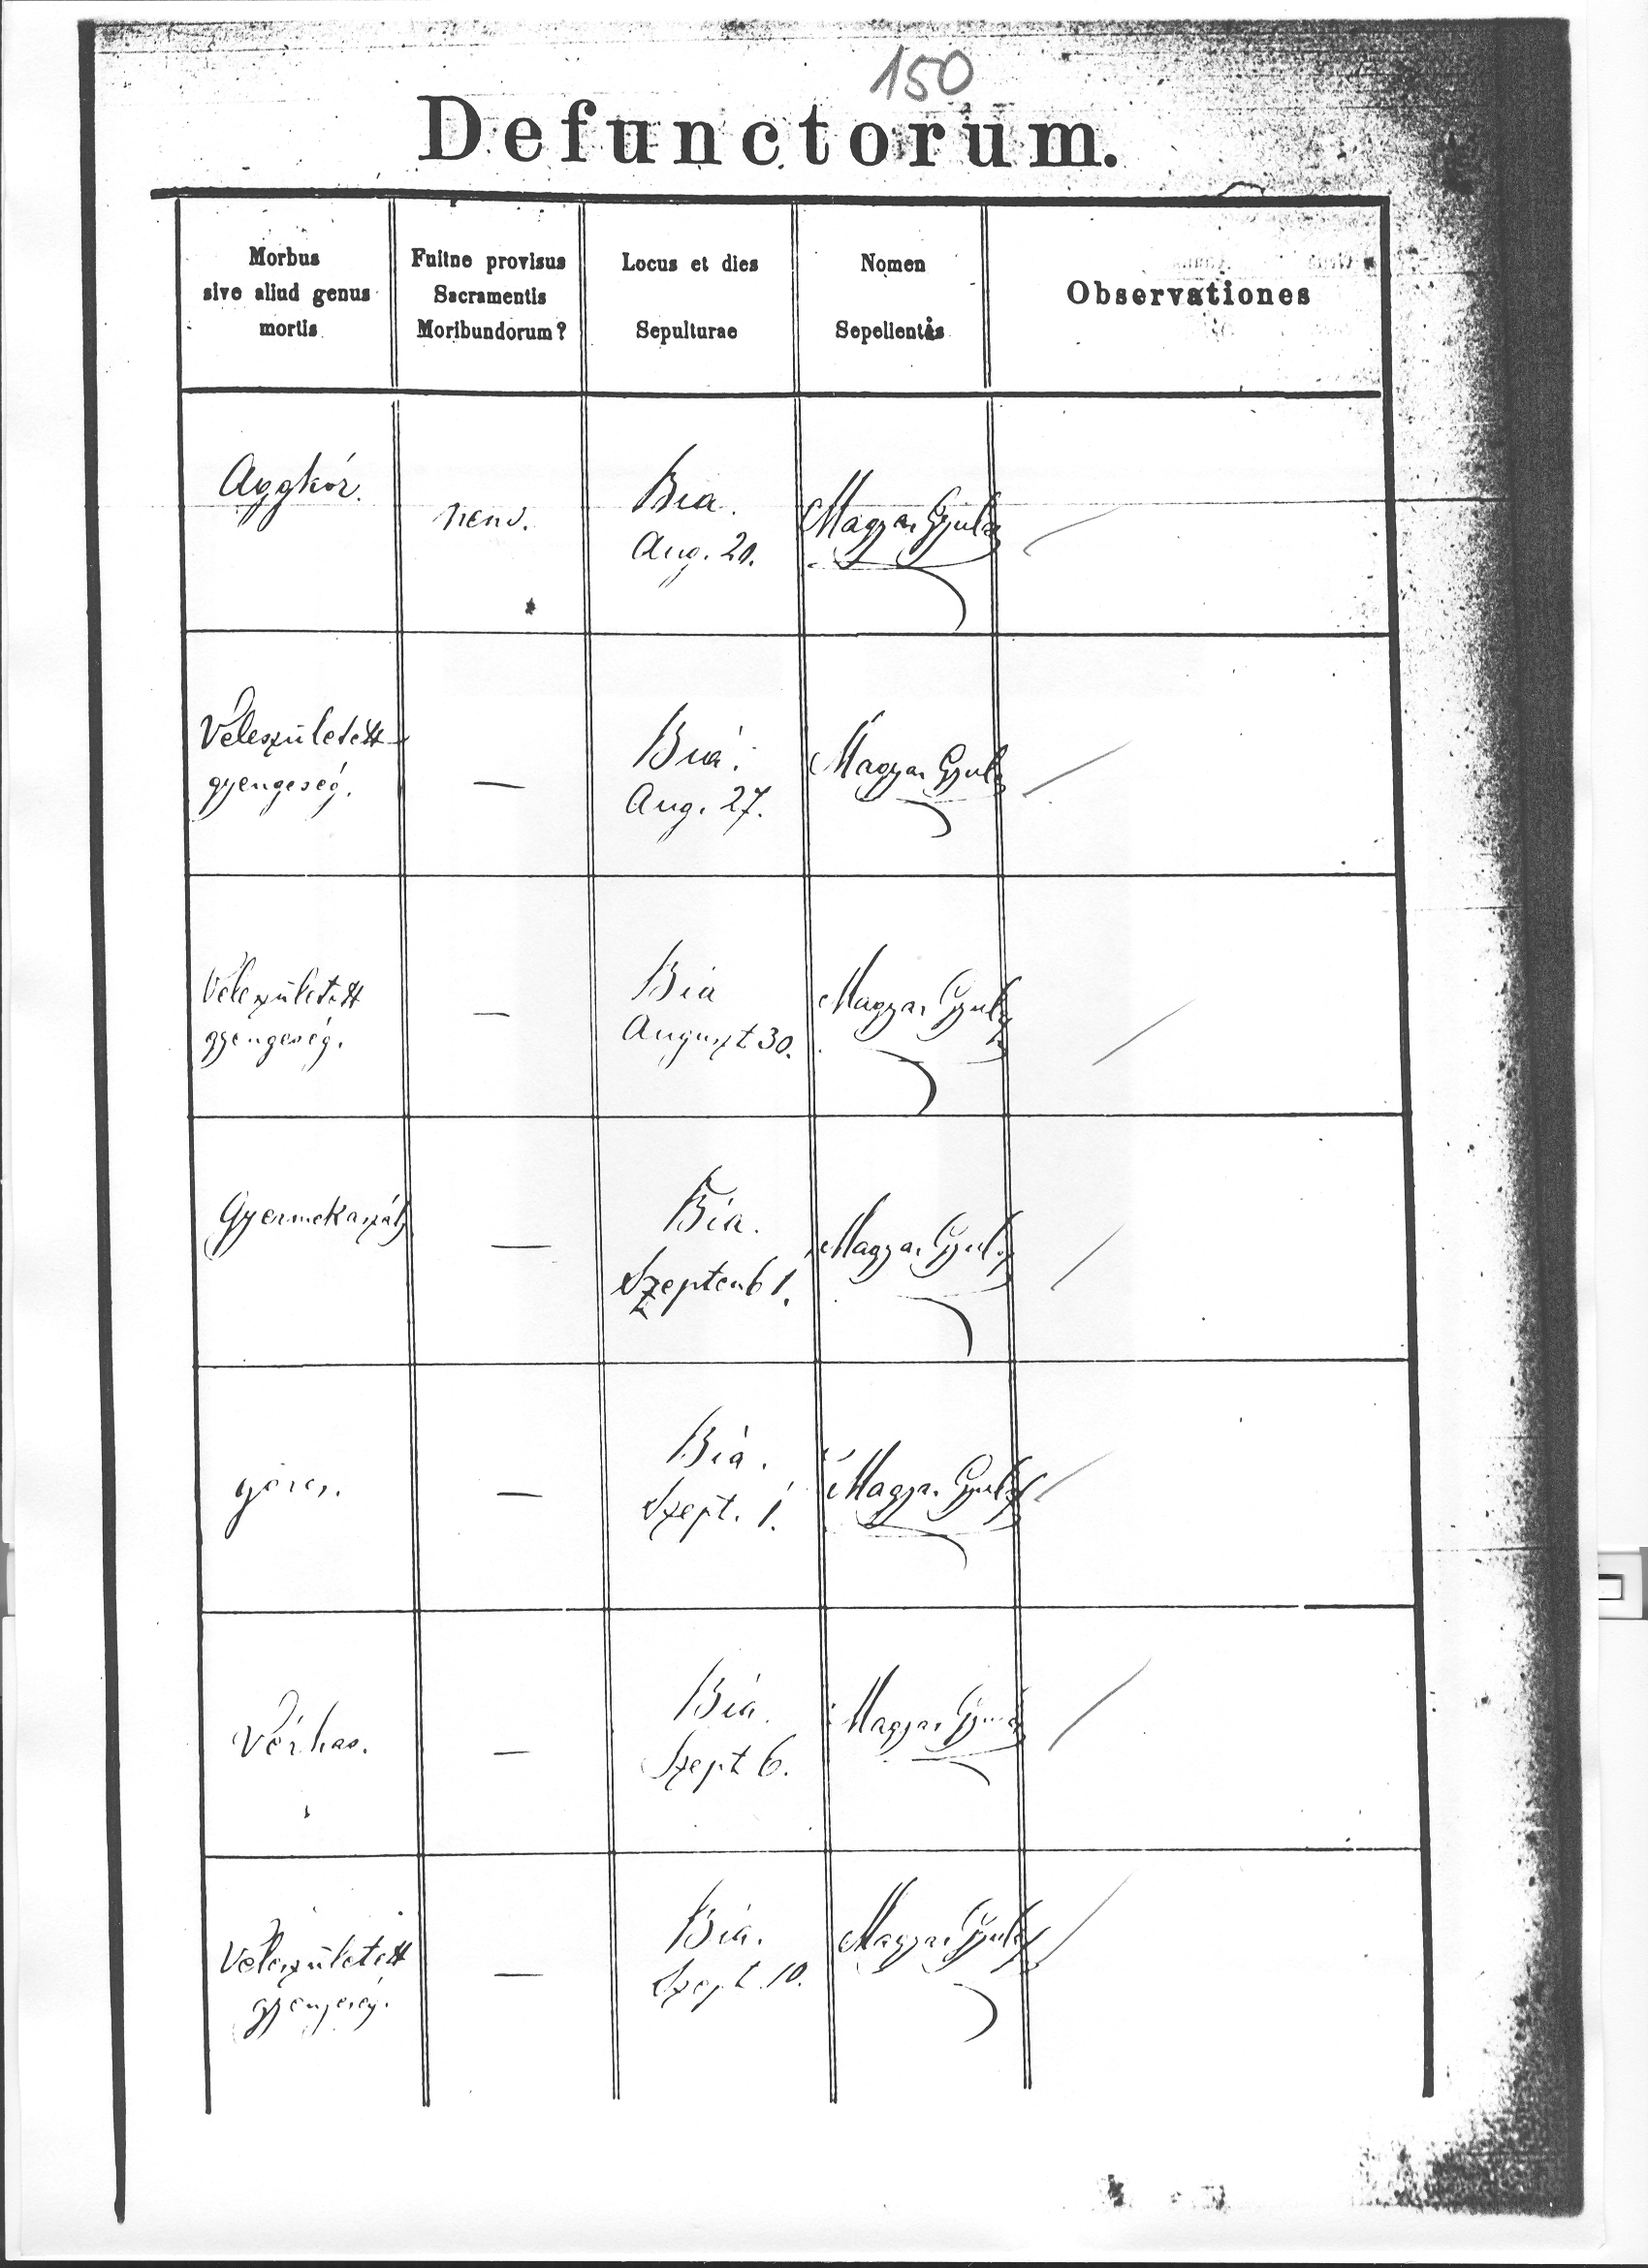 150
Defunctorum.
Morbus
sive aliud genus
mortis
Fuitne provisus
Sacramentis
Moribundorum?
Locus et dies
Sepulturae
Nomen
Sepelientis
Observationes
Aggkór.
nem.
Bia.
Aug. 20.
Magyar Gyula
Veleszületett
gyengeség.
—
Bia.
Aug. 27.
Magyar Gyula
Veleszületett
gyengeség.
—
Bia
Auguszt 30.
Magyar Gyula
Gyermekaszály
—
Bia.
Szeptemb 1.
Magyar Gyula
görcs.
—
Bia.
Szept. 1.
Magyar Gyula
Vérhas.
—
Bia.
Szept 6.
Magyar Gyula
Veleszületett
gyengeség.
—
Bia.
Szept. 10.
Magyar Gyula